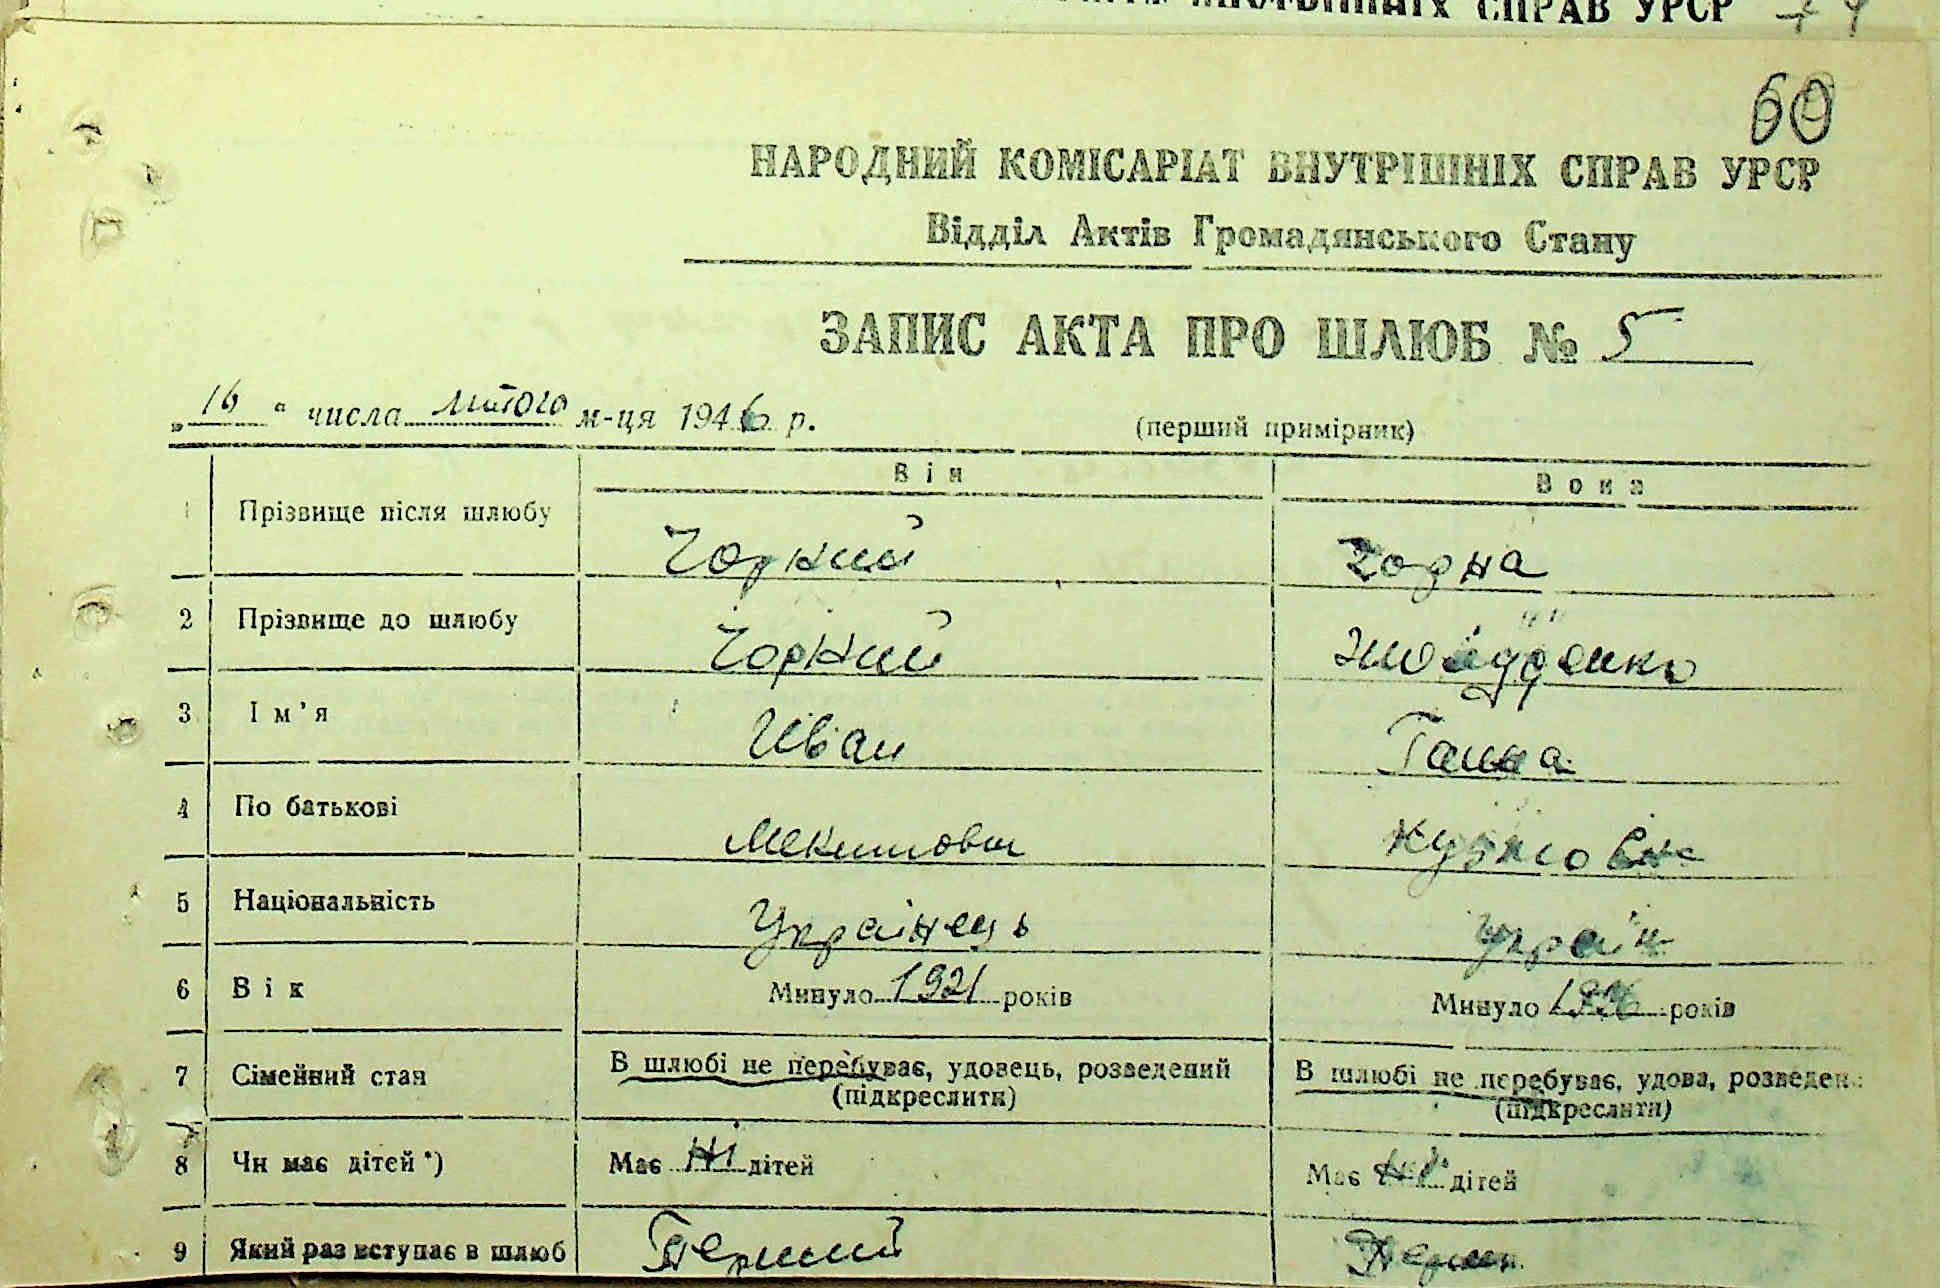 СПРАВ УРСР
60
НАРОДНИЙ КОМІСАРІАТ ВНУТРІШНІХ СПРАВ УРСР
Відділ Актів Громадянського Стану
ЗАПИС АКТА ПРО ШЛЮБ № 5
„16“ числа лютого м-ця 1946 р. (перший примірник)
Він Вона
1 Прізвище після шлюбу Чорний Чорна
2 Прізвище до шлюбу Чорний
3 Ім'я Иван Ганна
4 По батькові Микитович Кузмовна
5 Національність Українець Україн
6 Вік Минуло 1921 років Минуло 1926 років
7 Сімейний стан В шлюбі не перебуває, удовець, розведений В шлюбі не перебуває, удова, розведена
(підкреслити) (підкреслити)
8 Чи має дітей *) Має Ні дітей Має Ні дітей
9 Який раз вступає в шлюб Перший Перши